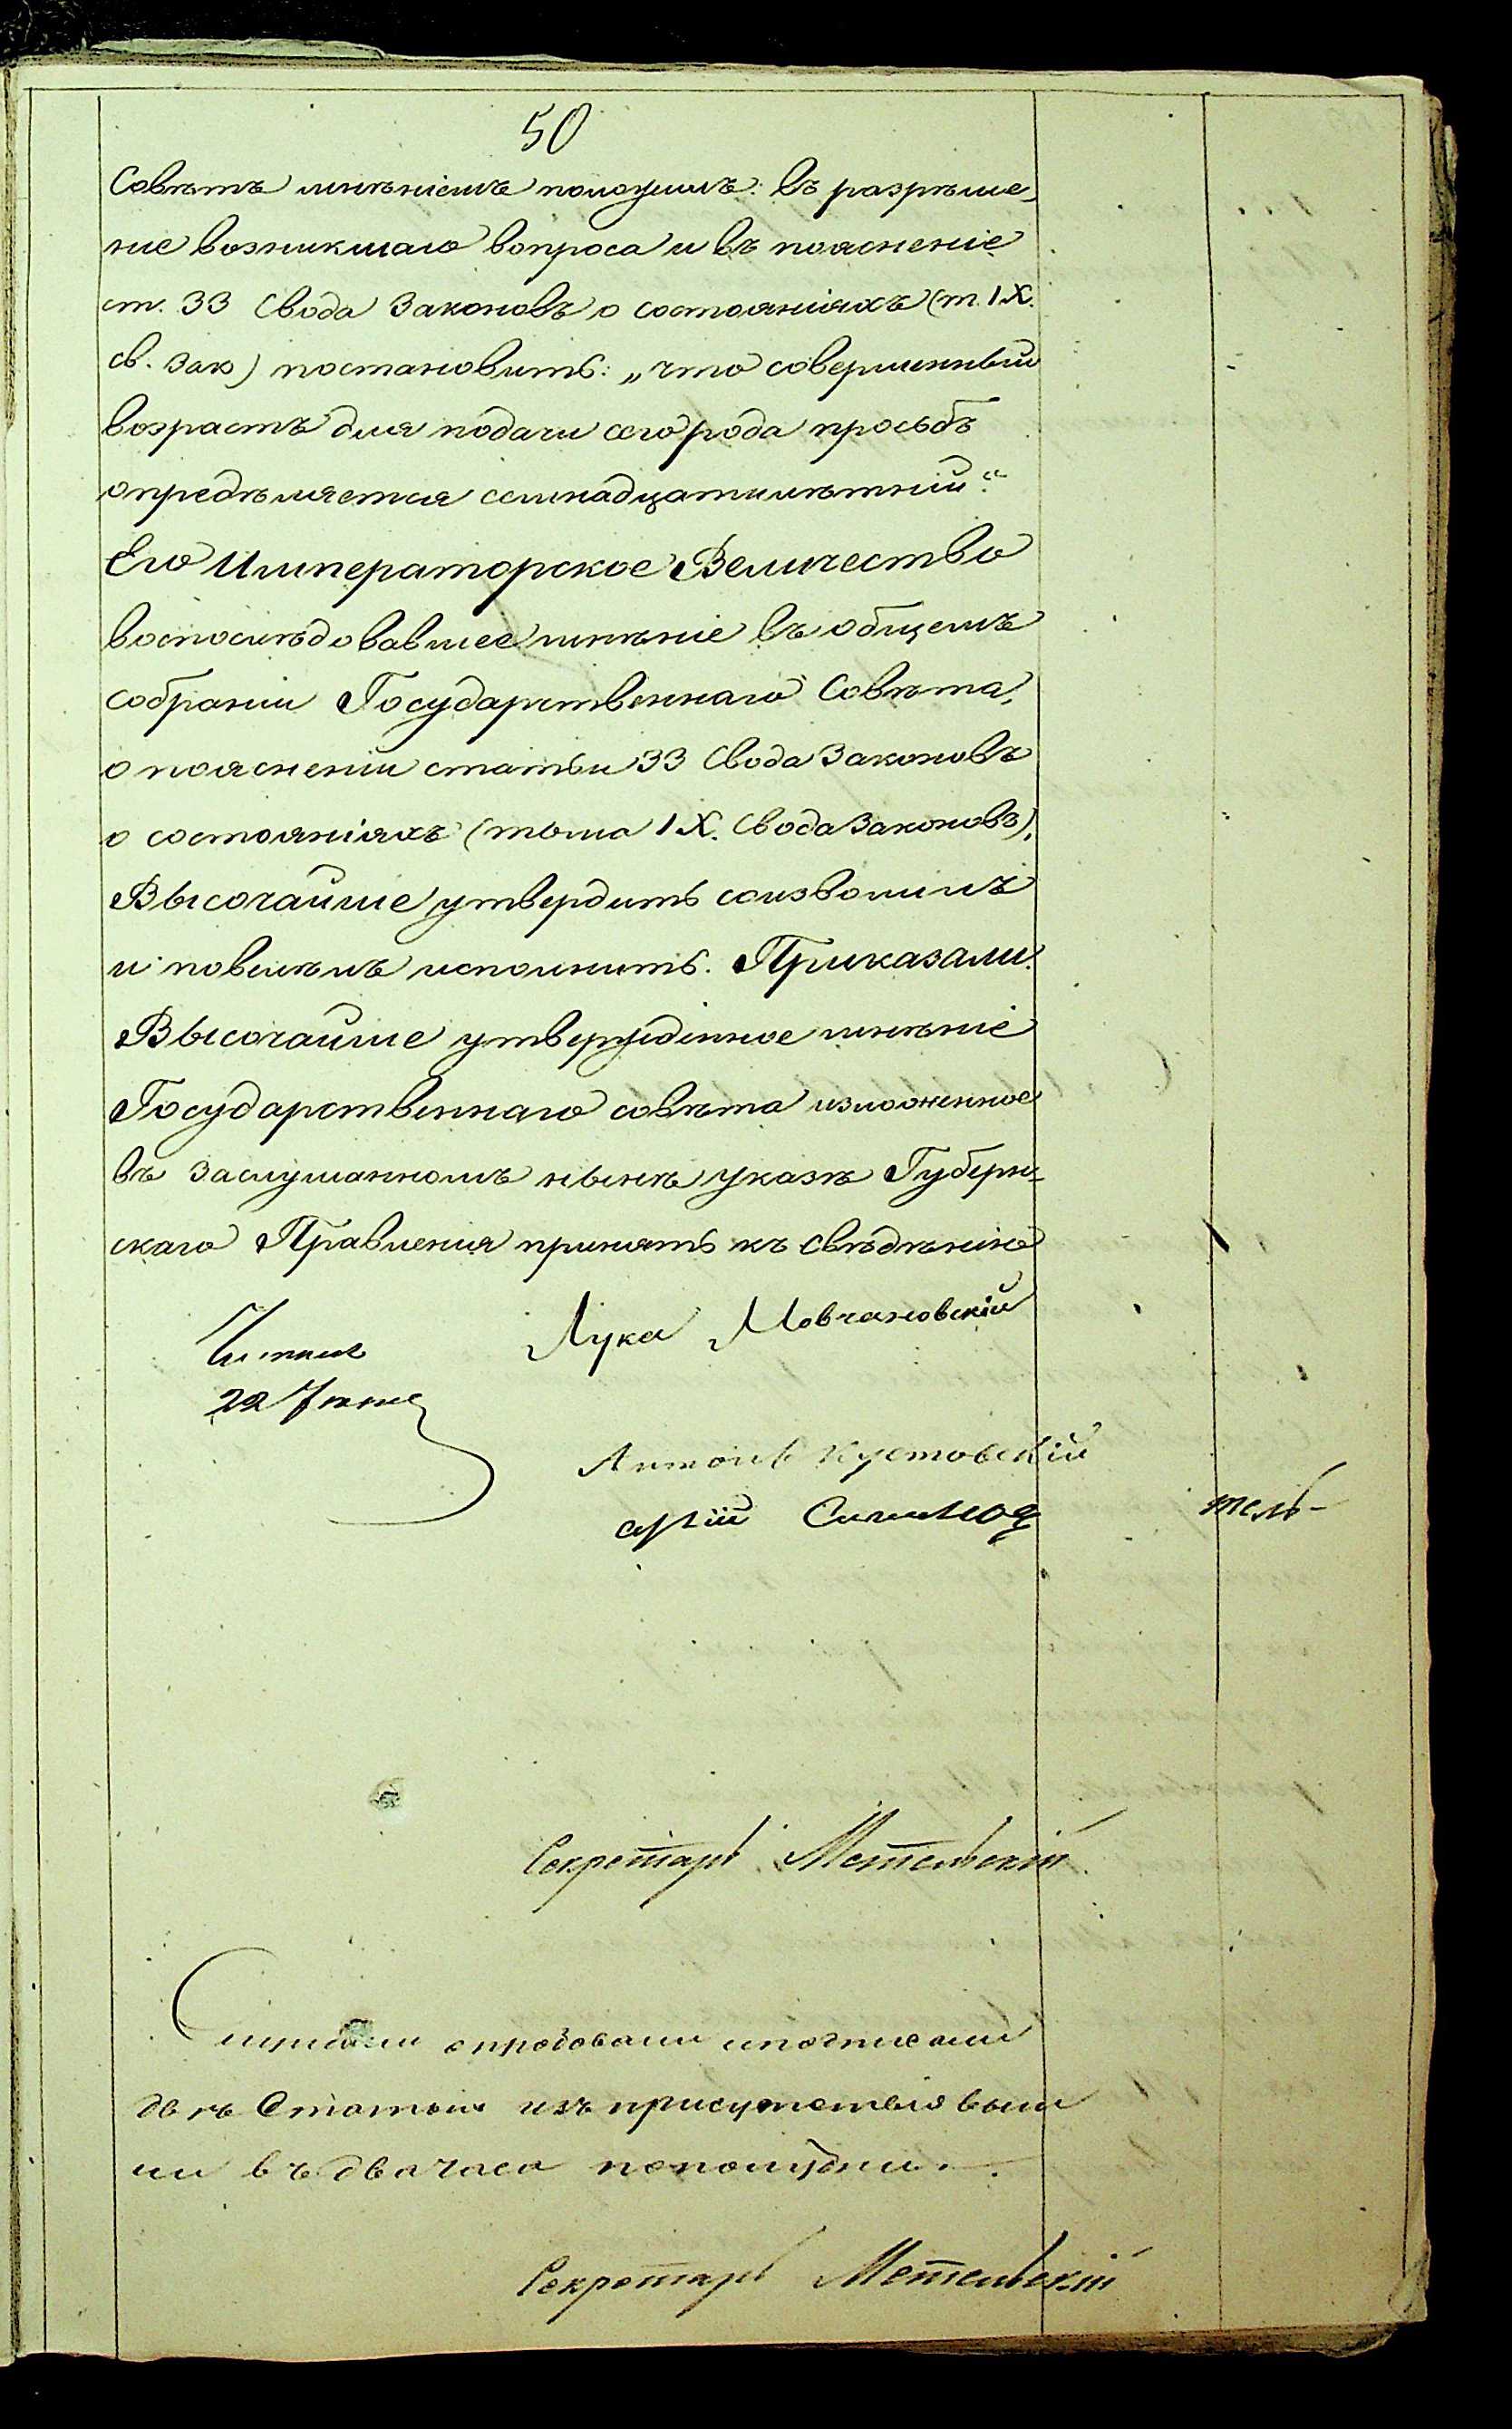 50
Совѣтъ мнѣніемъ положилъ: въ разрѣше-
ніе возникшаго вопроса и въ поясненіе
ст. 33 Свода Законовъ о состояніяхъ (т. IX.
св. Зак) постановить: „что совершенный
возрастъ для подачи сего рода просьбъ
опредѣляется семнадцатилѣтній“.
Его Императорское Величество
воспослѣдовавшее мнѣніе въ общемъ
собраніи Государственнаго Совѣта,
о поясненіи статьи 33 Свода Законовъ
о состояніяхъ (тома IX. Свода Законовъ),
Высочайше утвердить соизволилъ
и повелѣлъ исполнить. Приказали:
Высочайше утвержденное мнѣніе
Государственнаго совѣта изложенное
въ заслушанномъ нынѣ указѣ Губерн-
скаго Правленія принять къ свѣдѣнію
Лука Мовчановскій
22 Іюня
Антонъ Кустовскій
тель-
Секретарь Метельскій
Слушали опробовали иподписали
двѣ Статьи изъ присутствія выш
ли въ два часа пополудни.
Секретарь Метельскій